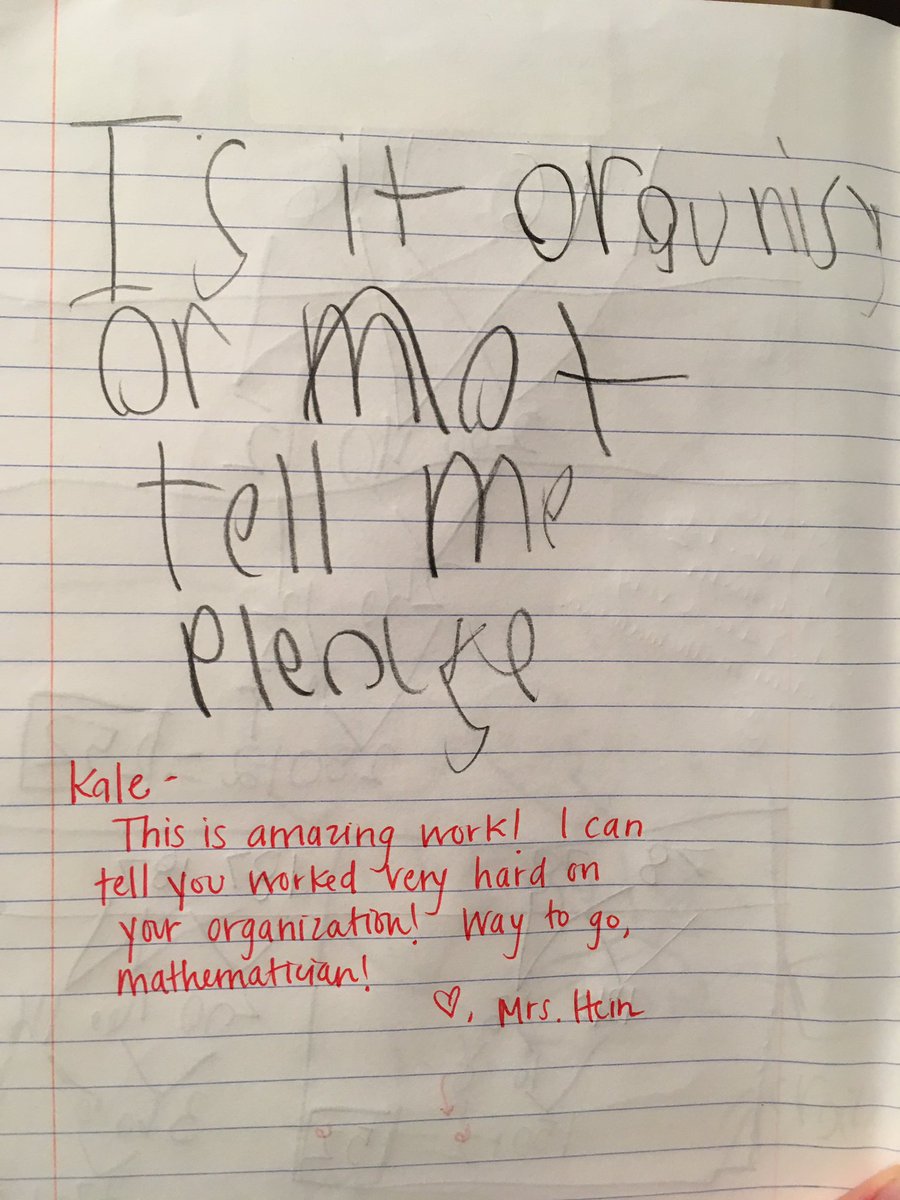 Is it orgunisy
or mot
tell me
please
Kale -
This is amazing work! I can
tell you worked very hard on
your organization! Way to go,
mathematician!
♡, Mrs. Hein